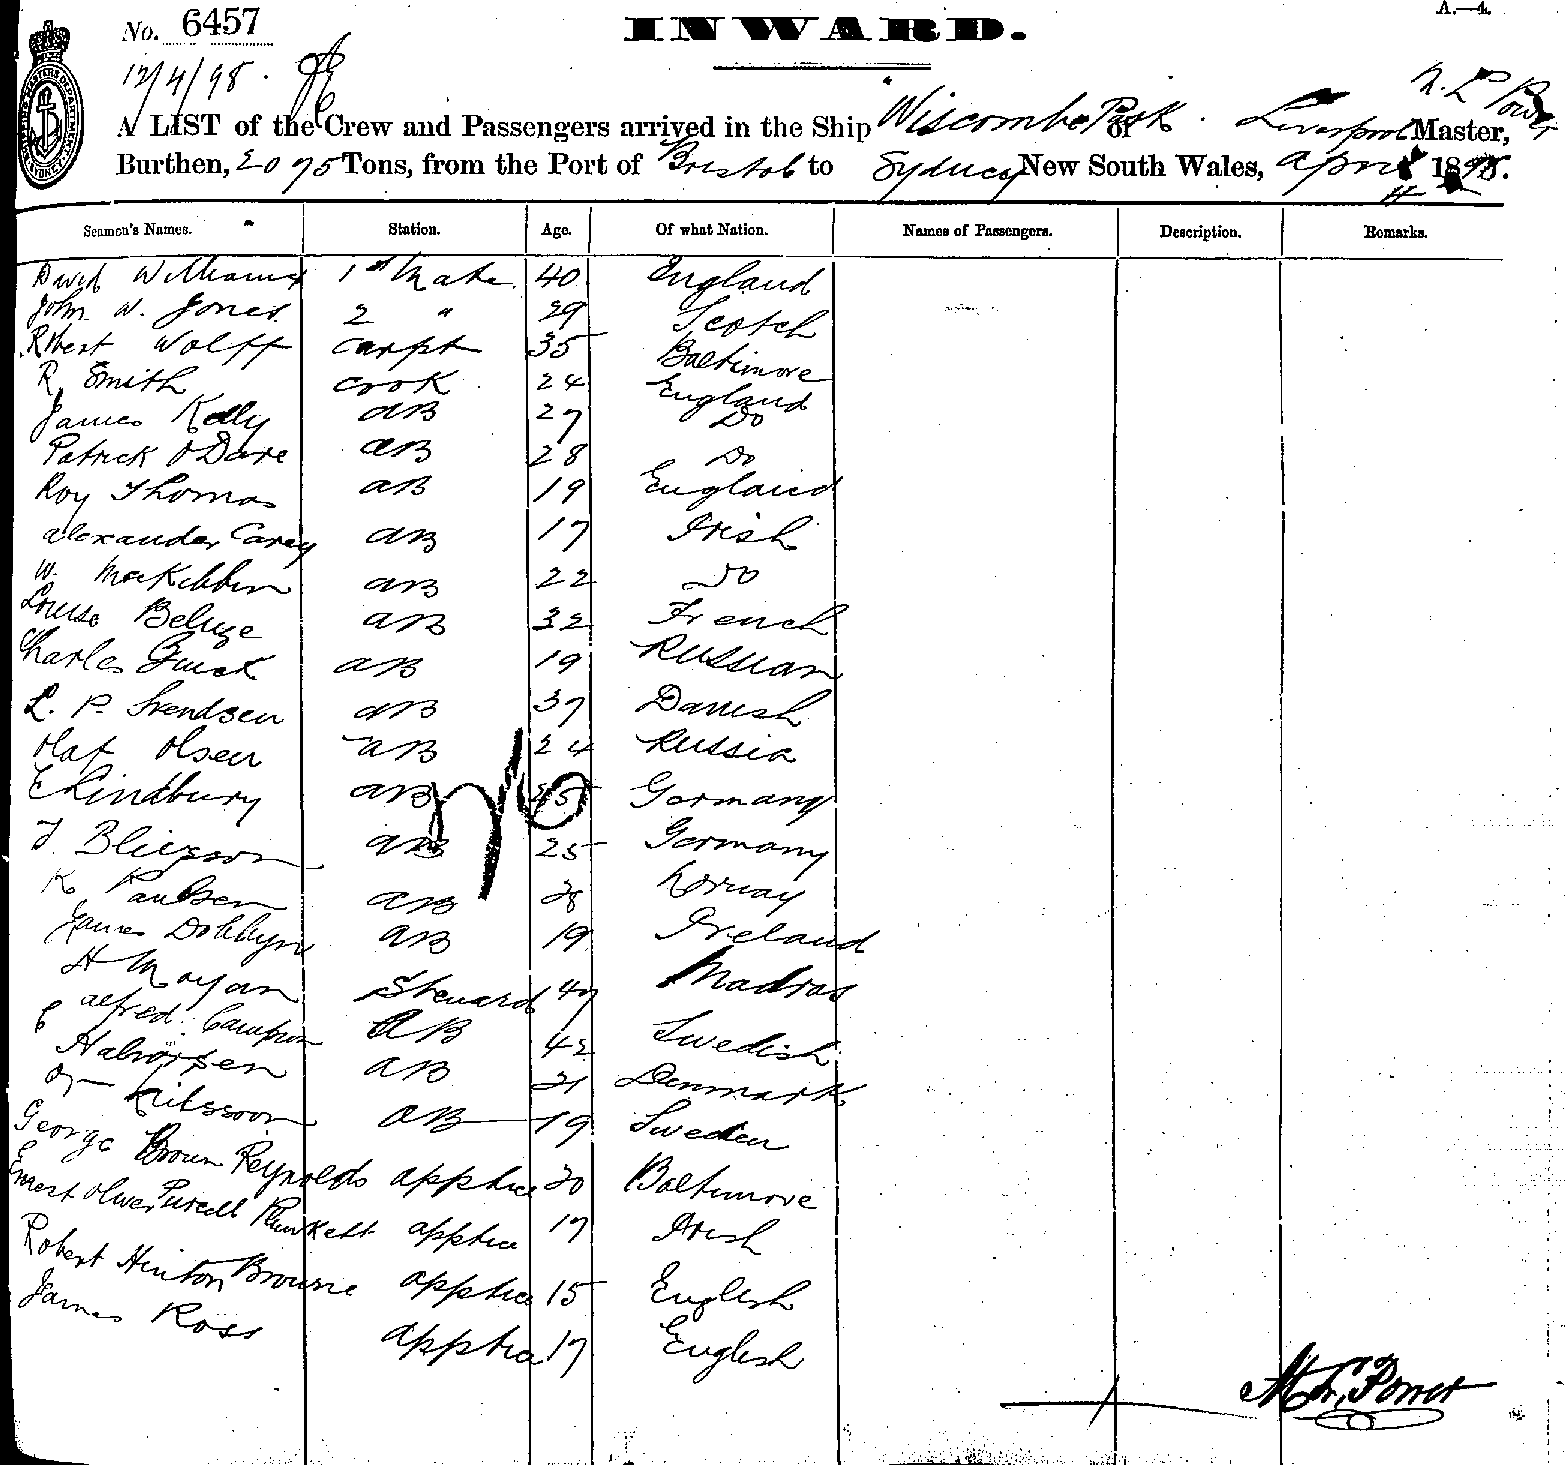 No. 6457
INWARD.
A.—4.
12/4/98.
A LIST of the Crew and Passengers arrived in the Ship "Wiscombe Park of Liverpool Master,
Burthen, 2075 Tons, from the Port of Bristol to Sydney New South Wales, April 1898.
Seamen's Names. Station. Age. Of what Nation. Names of Passengers. Description. Remarks.
David Williams 1st Mate 40 England
John W. Jones 2 " 29 Scotch
Robert Wolff Carpt 35 Baltimore
R Smith Cook 24 England
James Kelly AB 27 Do
Patrick O Dare AB 28 Do
Roy Thomas AB 19 England
Alexander Carey AB 17 Irish
W. MacKibbin AB 22 Do
Louise Beluze AB 32 French
Charles AB 19 Russian
L. P. Svendsen AB 37 Danish
Olaf Olsen AB 24 Russia
E Lindbury AB 25 Germany
AB 25 Germany
K Paulsen AB 28 Norway
James Dobbyn AB 19 Ireland
H Steward 47 Madras
Alfred AB 42 Swedish
Halvorsen AB 21 Denmark
Nilssoon AB 19 Sweden
George Brown Reynolds apptice 20 Baltimore
Ernest Oliver Purcell Plunkett apptice 17 Irish
Robert Hinton Browne apptice 15 English
James Ross apptice 17 English